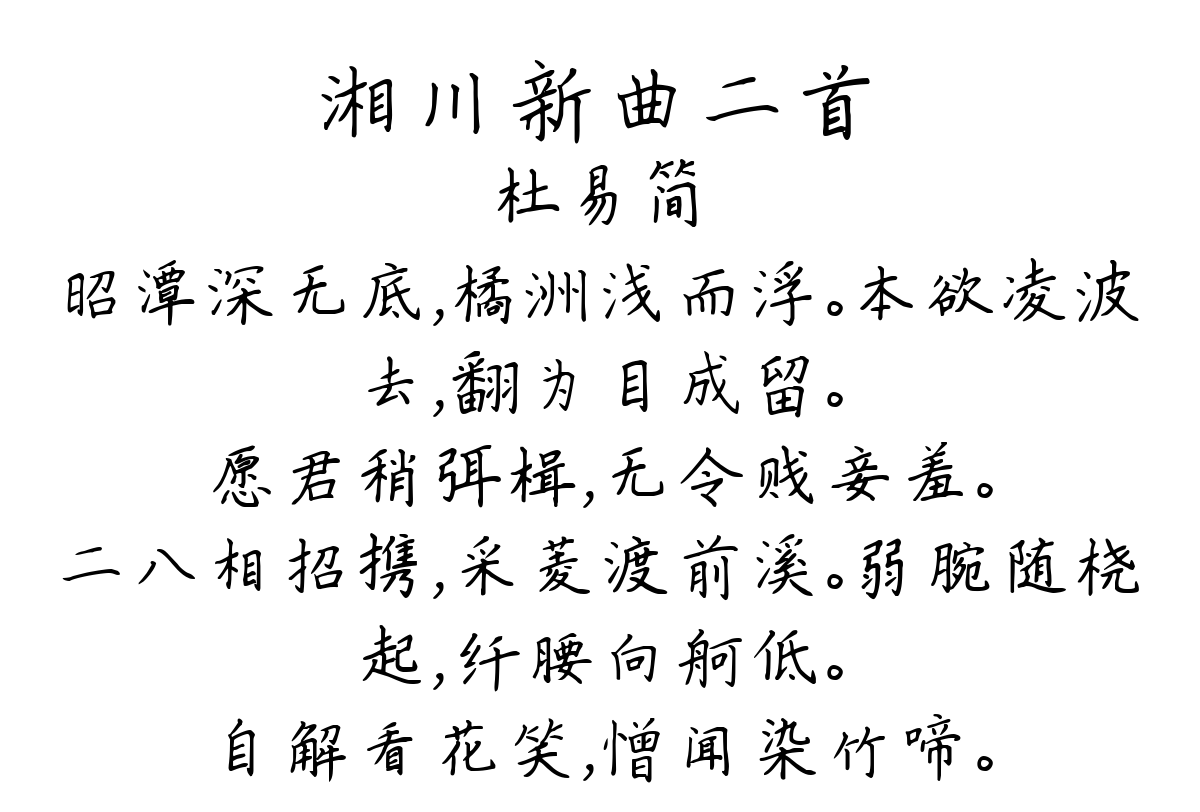 湘川新曲二首
杜易简
昭潭深无底,橘洲浅而浮。本欲凌波
去,翻为目成留。
愿君稍弭楫,无令贱妾羞。
二八相招携,采菱渡前溪。弱腕随桡
起,纤腰向舸低。
自解看花笑,憎闻染竹啼。